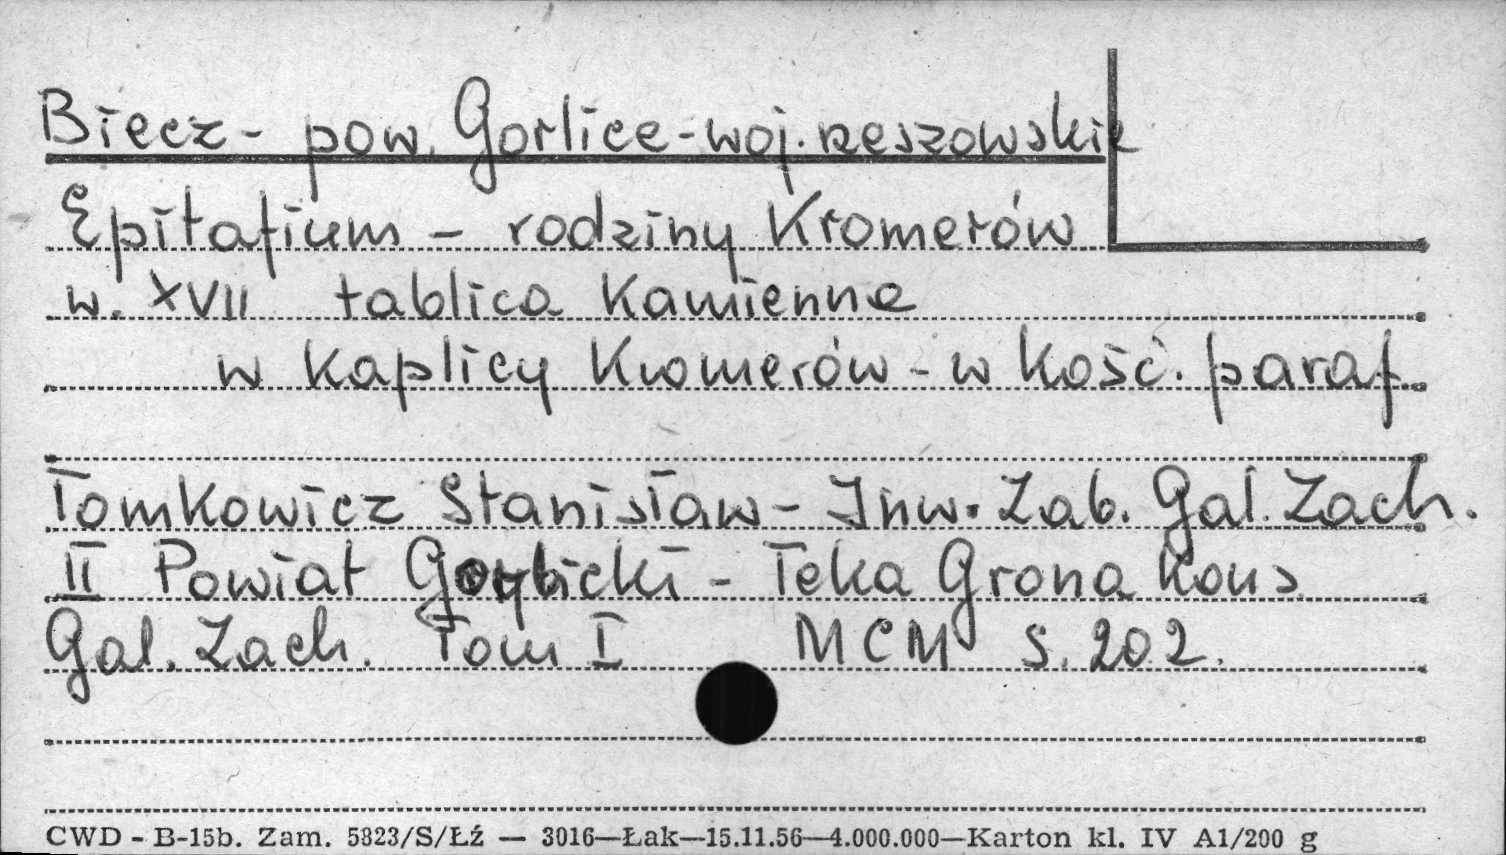 Biecz - pow. Gorlice - woj. rzeszowskie
Epitafium - rodziny Kromerów
w. XVII tablica Kamienna
w Kaplicy Kromerów - w Kość. paraf.
Tomkowicz Stanisław - Inw. Zab. Gal. Zach.
II Powiat Gorlicki - Teka Grona Kons
Gal. Zach. Tom I MCM S. 202.
CWD - B-15b. Zam. 5823/S/Łź — 3016—Łak—15.11.56—4.000.000—Karton kl. IV A1/200 g